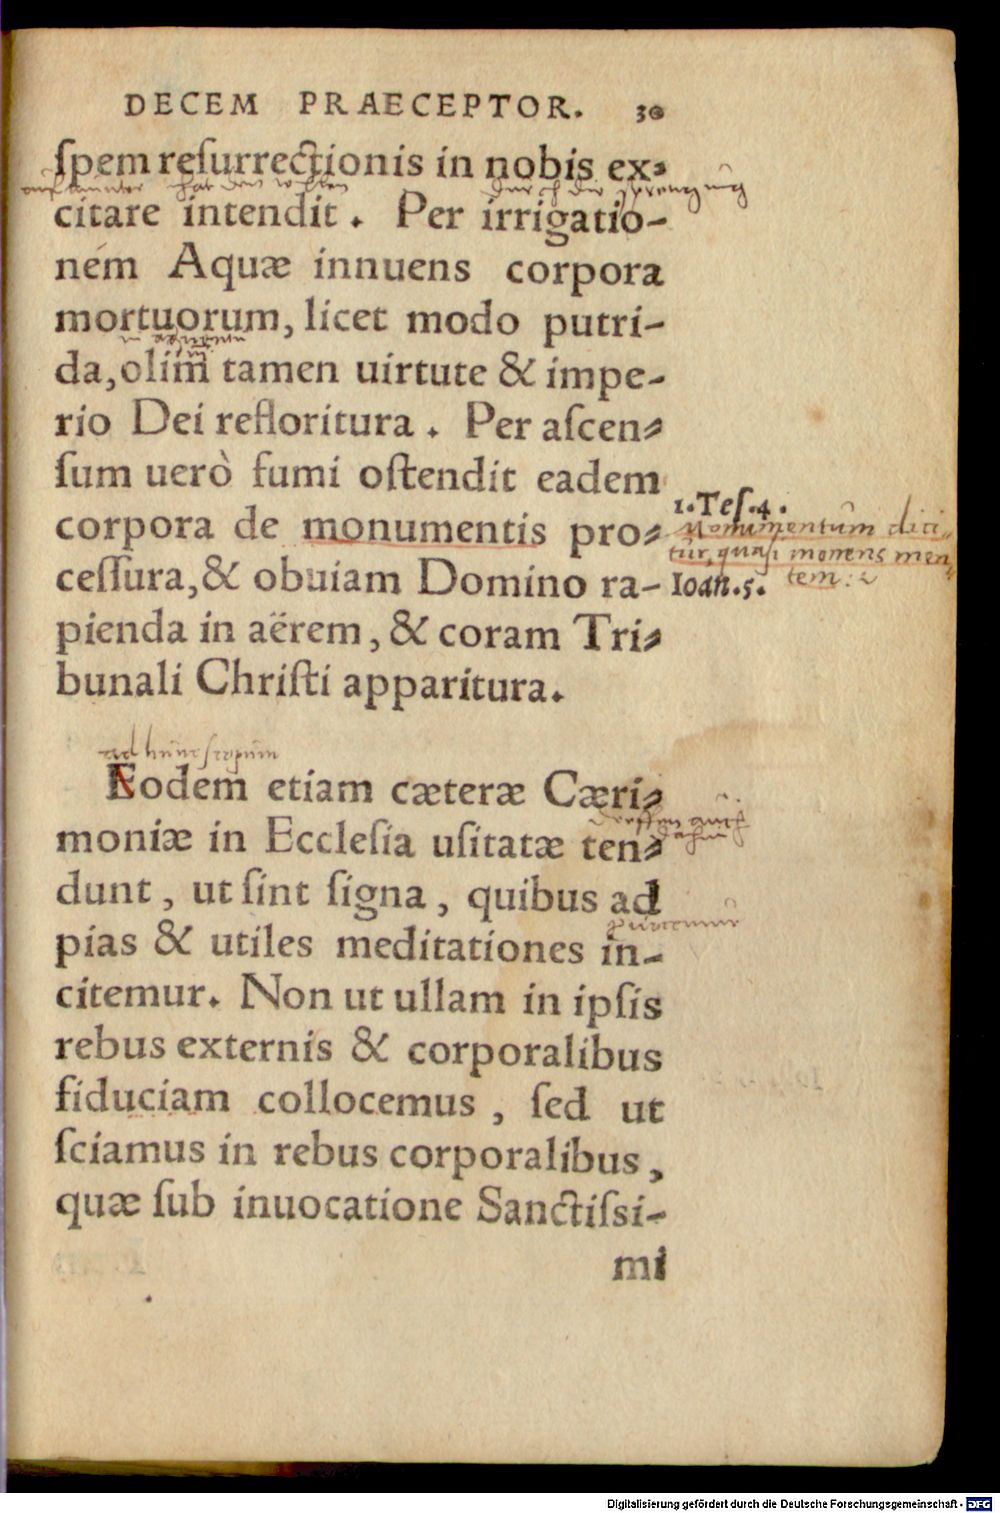 DECEM PRAECEPTOR. 30
ſpem reſurrectionis in nobis ex⸗
hat den willen durch die sprengung
citare intendit. Per irrigatio-
nem Aquæ innuens corpora
mortuorum, licet modo putri-
da, olim̃ tamen uirtute & impe-
rio Dei refloritura. Per aſcen⸗
ſum uerò fumi oſtendit eadem
1. Teſ. 4.
corpora de monumentis pro⸗
Monumentum dici-
tur, quasi monens men-
tem.
ceſſura, & obuiam Domino ra-
Ioan. 5.
pienda in aërem, & coram Tri⸗
bunali Chriſti apparitura.
ad hunc scopum
Eodem etiam cæteræ Cæri⸗
moniæ in Eccleſia uſitatæ ten⸗
dunt, ut ſint ſigna, quibus ad
pias & utiles meditationes in-
citemur. Non ut ullam in ipſis
rebus externis & corporalibus
fiduciam collocemus, ſed ut
ſciamus in rebus corporalibus,
quæ ſub inuocatione Sanctiſsi-
mi
Digitalisierung gefördert durch die Deutsche Forschungsgemeinschaft - DFG